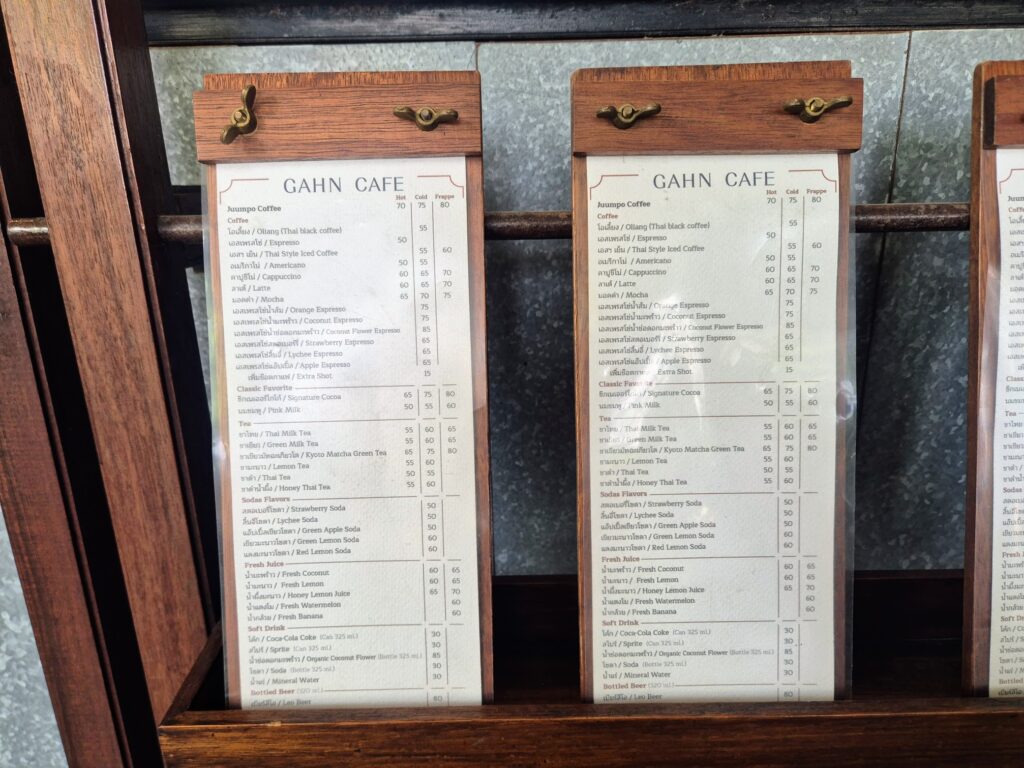 GAHN CAFE
Hot Cold Frappe
Juumpo Coffee 70 75 80
Coffee
โอเลี้ยง / Oliang (Thai black coffee) 55
เอสเพรสโซ่ / Espresso 50
เอสฯ เย็น / Thai Style Iced Coffee 55 60
อเมริกาโน่ / Americano 50 55
คาปูชิโน่ / Cappuccino 60 65 70
ลาเต้ / Latte 60 65 70
มอคค่า / Mocha 65 70 75
เอสเพรสโซ่น้ำส้ม / Orange Espresso 75
เอสเพรสโซ่น้ำมะพร้าว / Coconut Espresso 75
เอสเพรสโซ่น้ำช่อดอกมะพร้าว / Coconut Flower Espresso 85
เอสเพรสโซ่สตอเบอร์รี่ / Strawberry Espresso 65
เอสเพรสโซ่ลิ้นจี่ / Lychee Espresso 65
เอสเพรสโซ่แอ๊ปเปิ้ล / Apple Espresso 65
เพิ่มช๊อตกาแฟ / Extra Shot 15
Classic Favorite
ซิกเนเจอร์โกโก้ / Signature Cocoa 65 75 80
นมชมพู / Pink Milk 50 55 60
Tea
ชาไทย / Thai Milk Tea 55 60 65
ชาเขียว / Green Milk Tea 55 60 65
ชาเขียวมัทฉะเกียวโต / Kyoto Matcha Green Tea 65 75 80
ชามะนาว / Lemon Tea 55 60
ชาดำ / Thai Tea 50 55
ชาดำน้ำผึ้ง / Honey Thai Tea 55 60
Sodas Flavors
สตอเบอรี่โซดา / Strawberry Soda 50
ลิ้นจี่โซดา / Lychee Soda 50
แอ๊ปเปิ้ลเขียวโซดา / Green Apple Soda 50
เขียวมะนาวโซดา / Green Lemon Soda 60
แดงมะนาวโซดา / Red Lemon Soda 60
Fresh Juice
น้ำมะพร้าว / Fresh Coconut 60 65
น้ำมะนาว / Fresh Lemon 60 65
น้ำผึ้งมะนาว / Honey Lemon Juice 65 70
น้ำแตงโม / Fresh Watermelon 60
น้ำกล้วย / Fresh Banana 60
Soft Drink
โค้ก / Coca-Cola Coke (Can 325 ml.) 30
สไปร์ / Sprite (Can 325 ml.) 30
น้ำช่อดอกมะพร้าว / Organic Coconut Flower (Bottle 325 ml.) 85
โซดา / Soda (Bottle 325 ml.) 30
น้ำแร่ / Mineral Water 30
Bottled Beer (320 ml.)
เบียร์ลีโอ / Leo Beer 80
GAHN CAFE
Hot Cold Frappe
Juumpo Coffee 70 75 80
Coffee
โอเลี้ยง / Oliang (Thai black coffee) 55
เอสเพรสโซ่ / Espresso 50
เอสฯ เย็น / Thai Style Iced Coffee 55 60
อเมริกาโน่ / Americano 50 55
คาปูชิโน่ / Cappuccino 60 65 70
ลาเต้ / Latte 60 65 70
มอคค่า / Mocha 65 70 75
เอสเพรสโซ่น้ำส้ม / Orange Espresso 75
เอสเพรสโซ่น้ำมะพร้าว / Coconut Espresso 75
เอสเพรสโซ่น้ำช่อดอกมะพร้าว / Coconut Flower Espresso 85
เอสเพรสโซ่สตอเบอร์รี่ / Strawberry Espresso 65
เอสเพรสโซ่ลิ้นจี่ / Lychee Espresso 65
เอสเพรสโซ่แอ๊ปเปิ้ล / Apple Espresso 65
เพิ่มช๊อตกาแฟ / Extra Shot 15
Classic Favorite
ซิกเนเจอร์โกโก้ / Signature Cocoa 65 75 80
นมชมพู / Pink Milk 50 55 60
Tea
ชาไทย / Thai Milk Tea 55 60 65
ชาเขียว / Green Milk Tea 55 60 65
ชาเขียวมัทฉะเกียวโต / Kyoto Matcha Green Tea 65 75 80
ชามะนาว / Lemon Tea 55 60
ชาดำ / Thai Tea 50 55
ชาดำน้ำผึ้ง / Honey Thai Tea 55 60
Sodas Flavors
สตอเบอรี่โซดา / Strawberry Soda 50
ลิ้นจี่โซดา / Lychee Soda 50
แอ๊ปเปิ้ลเขียวโซดา / Green Apple Soda 50
เขียวมะนาวโซดา / Green Lemon Soda 60
แดงมะนาวโซดา / Red Lemon Soda 60
Fresh Juice
น้ำมะพร้าว / Fresh Coconut 60 65
น้ำมะนาว / Fresh Lemon 60 65
น้ำผึ้งมะนาว / Honey Lemon Juice 65 70
น้ำแตงโม / Fresh Watermelon 60
น้ำกล้วย / Fresh Banana 60
Soft Drink
โค้ก / Coca-Cola Coke (Can 325 ml.) 30
สไปร์ / Sprite (Can 325 ml.) 30
น้ำช่อดอกมะพร้าว / Organic Coconut Flower (Bottle 325 ml.) 85
โซดา / Soda (Bottle 325 ml.) 30
น้ำแร่ / Mineral Water 30
Bottled Beer (320 ml.)
เบียร์ลีโอ / Leo Beer 80